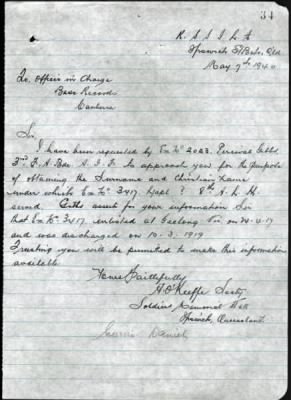 34
R. S. S. I. L. A
Ipswich S/Bch. Qld
May. 7th 1940
To Officer in Charge
Base Records
Canberra
Sir
I have been requested by Ex No 2023. Percival
3rd F. A. Bde A. I. F. to approach you for the purpose
of obtaining the Surname and Christian Name
under which Ex No 3417. Dept ? 8th A. L. H.
served for your information Sir
that Ex No 3417. enlisted at Geelong Vic on 24-4-17
and was discharged on 10-3-1919
Trusting you will be permitted to make this information
available
Yours Faithfully
H O'Keeffe Secty.
Soldiers Memorial Hall
Ipswich, Queensland.
Daniel